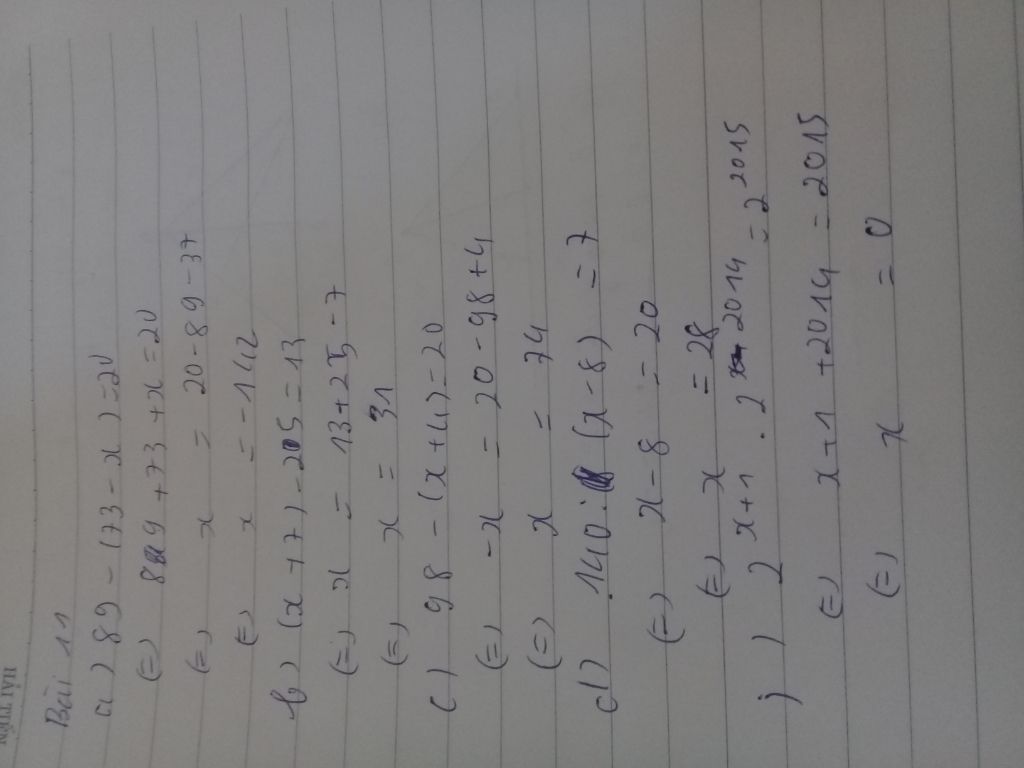 Bài 11
a) 89 - (73 - x) = 20
(=) 89 + 73 + x = 20
(=) x = 20 - 89 - 37
(=) x = -142
b) (x + 7) - 25 = 13
(=) x = 13 + 25 - 7
(=) x = 31
c) 98 - (x + 4) = 20
(=) -x = 20 - 98 + 4
(=) x = 74
d) 140 : (x - 8) = 7
(=) x - 8 = 20
(=) x = 28
j) 2 x+1 . 2 2014 = 2 2015
(=) x + 1 + 2014 = 2015
(=) x = 0